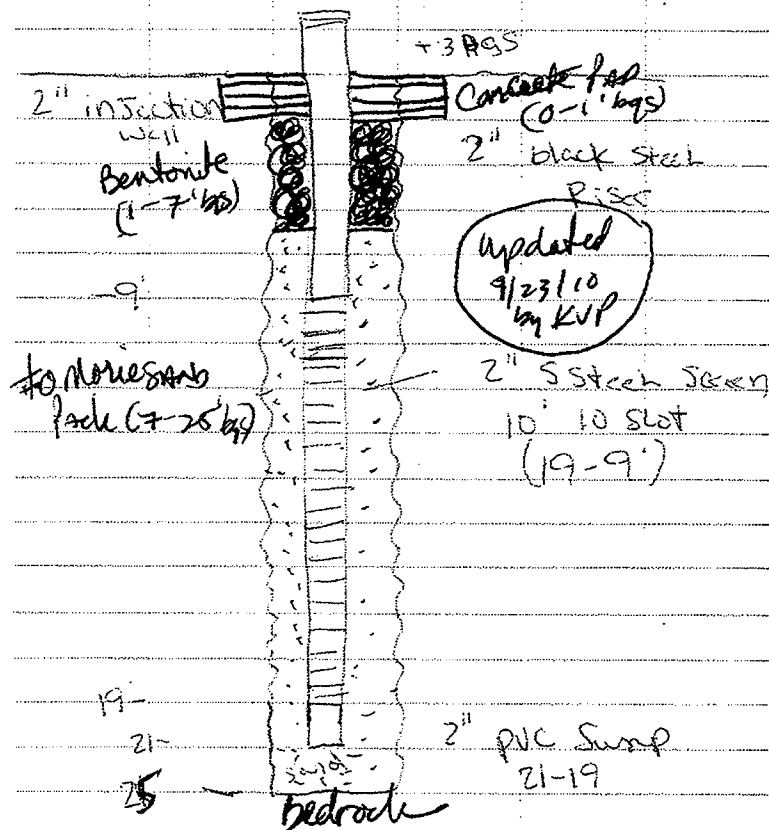 +3 AGS
2" injection
well
Concrete PAD
(0-1' bgs)
Bentonite
(1-7' bgs)
2" black Steel
Riser
Updated
9/23/10
by KVP
-9'
#0 Morie SAND
Pack (7-25' bgs)
2" S Steel Screen
10' 10 Slot
(19-9')
19-
21-
25
2" PVC Sump
21-19
Bedrock